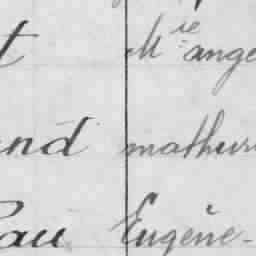 t Mie ange
and mathuri
Pau Eugène-